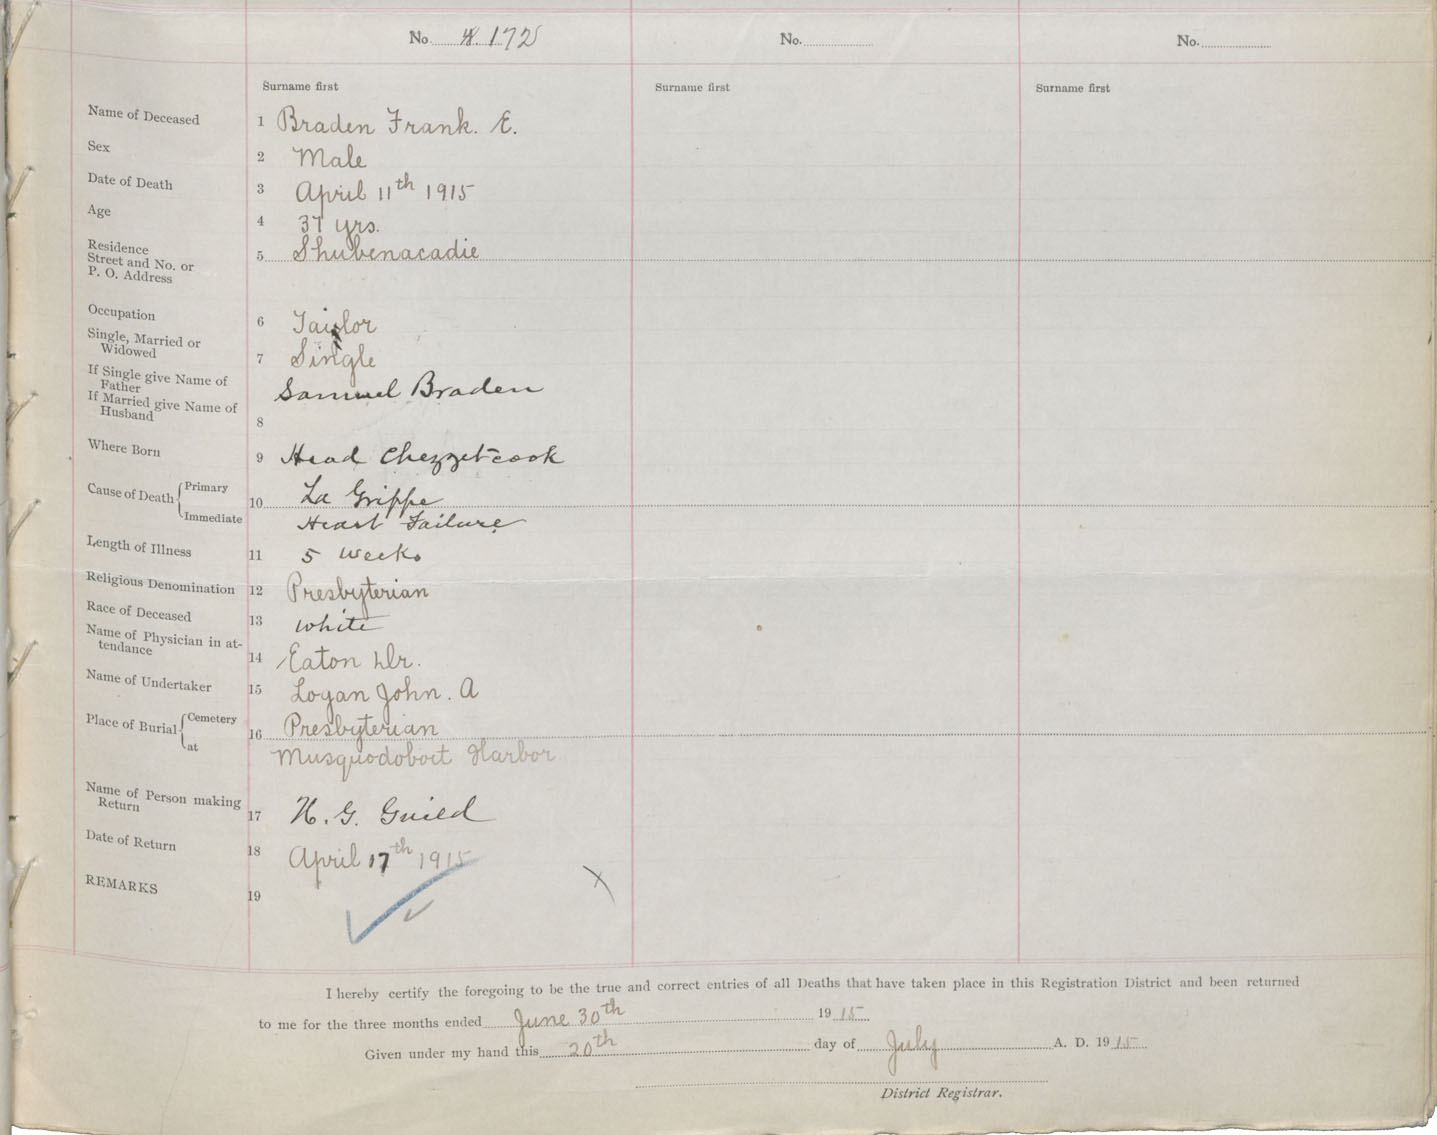 No. 172 No. No.
Surname first Surname first Surname first
Name of Deceased 1 Braden Frank. E.
Sex 2 Male
Date of Death 3 April 11th 1915
Age 4 37 yrs.
Residence
Street and No. or 5 Shubenacadie
P. O. Address
Occupation 6 Tailor
Single, Married or
Widowed 7 Single
If Single give Name of
Father Samuel Braden
If Married give Name of
Husband 8
Where Born 9 Head Chezzetcook
Cause of Death { Primary 10 La Grippe
Immediate Heart Failure
Length of Illness 11 5 weeks
Religious Denomination 12 Presbyterian
Race of Deceased 13 White
Name of Physician in at-
tendance 14 Eaton Dr.
Name of Undertaker 15 Logan John. A
Place of Burial { Cemetery 16 Presbyterian
at Musquodoboit Harbor
Name of Person making
Return 17 H. G. Guild
Date of Return 18 April 17th 1915
REMARKS 19
I hereby certify the foregoing to be the true and correct entries of all Deaths that have taken place in this Registration District and been returned
to me for the three months ended June 30th 1915
Given under my hand this 20th day of July A. D. 1915
District Registrar.